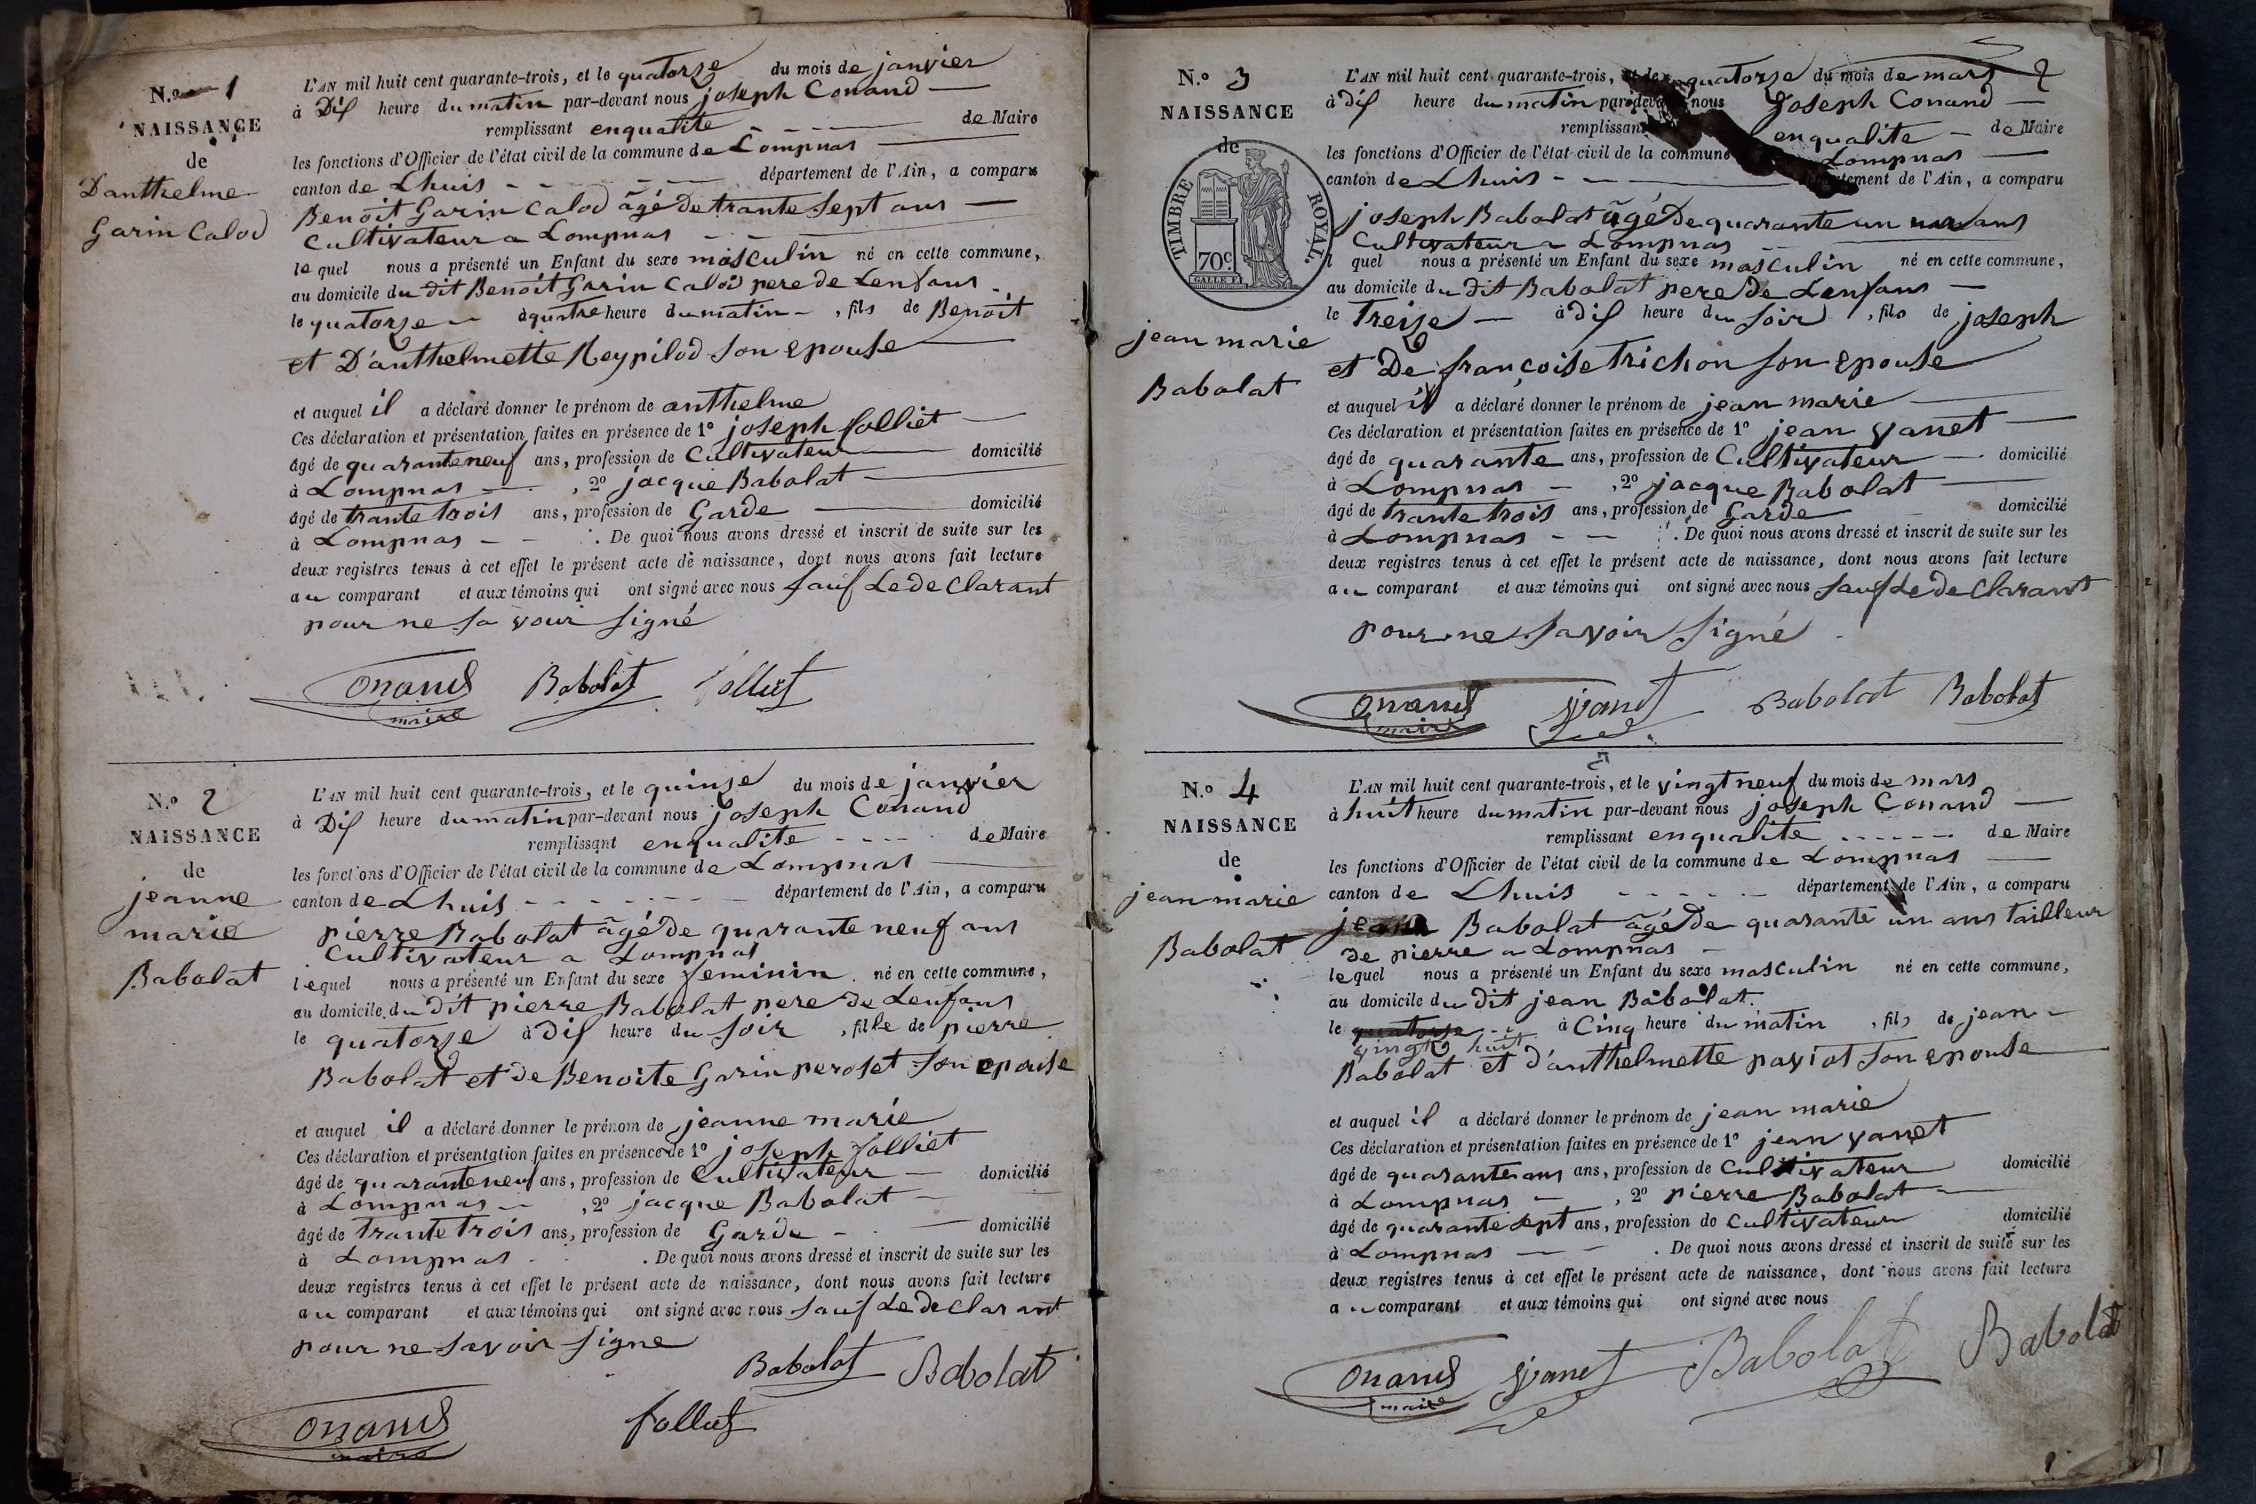 N.o 1
NAISSANCE
de
D'anthelme
Garin Calod
L'AN mil huit cent quarante-trois, et le quatorze du mois de janvier
à Dis heure du matin par-devant nous joseph Conand
remplissant enqualité de Maire
les fonctions d'Officier de l'état civil de la commune de Lompnas
canton de Lhuis département de l'Ain, a comparu
Benoit Garin Calod âgé de trante sept ans
Cultivateur a Lompnas
lequel nous a présenté un Enfant du sexe masculin né en cette commune,
au domicile du dit Benoit Garin Calod pere de Lenfans
le quatorze à quatre heure du matin, fils de Benoit
et D'anthelmette Reypilod son epouse
et auquel il a déclaré donner le prénom de anthelme
Ces déclaration et présentation faites en présence de 1o joseph folliet
âgé de quaranteneuf ans, profession de Cultivateur domicilié
à Lompnas, 2o jacque Babolat
âgé de trante trois ans, profession de Garde domicilié
à Lompnas. De quoi nous avons dressé et inscrit de suite sur les
deux registres tenus à cet effet le présent acte de naissance, dont nous avons fait lecture
au comparant et aux témoins qui ont signé avec nous sauf Le de Clarant
pour ne sa voir signé
Conand Babolat folliet
maire
N.o 2
NAISSANCE
de
jeanne
marie
Babolat
L'AN mil huit cent quarante-trois, et le quinze du mois de janvier
à Dis heure du matin par-devant nous joseph Conand
remplissant enqualite de Maire
les fonctions d'Officier de l'état civil de la commune de Lompnas
canton de Lhuis département de l'Ain, a comparu
pierre Babolat âgé de quarante neuf ans
Cultivateur a Lompnas
lequel nous a présenté un Enfant du sexe feminin né en cette commune,
au domicile du dit pierre Babolat pere de Lenfans
le quatorze à dis heure du soir, fille de pierre
Babolat et de Benoite Garin peroset son epouse
et auquel il a déclaré donner le prénom de jeanne marie
Ces déclaration et présentation faites en présence de 1o joseph folliet
âgé de quaranteneuf ans, profession de Cultivateur domicilié
à Lompnas, 2o jacque Babolat
âgé de trante trois ans, profession de Garde domicilié
à Lompnas. De quoi nous avons dressé et inscrit de suite sur les
deux registres tenus à cet effet le présent acte de naissance, dont nous avons fait lecture
au comparant et aux témoins qui ont signé avec nous sauf Le de Clarant
pour ne savoir signe
Babolat Babolat
Conand folliet
maire
2
N.o 3
NAISSANCE
de
TIMBRE ROYAL.
70c.
jean marie
Babolat
L'AN mil huit cent quarante-trois, et le quatorze du mois de mars
à dis heure du matin par-devant nous Joseph Conand
remplissant enqualite de Maire
les fonctions d'Officier de l'état civil de la commune Lompnas
canton de Lhuis département de l'Ain, a comparu
joseph Babolat âgé de quarante un ans
Cultivateur a Lompnas
lequel nous a présenté un Enfant du sexe masculin né en cette commune,
au domicile du dit Babolat pere de Lenfans
le treize à dis heure du soir, fils de joseph
et De françoise trichon son epouse
et auquel il a déclaré donner le prénom de jean marie
Ces déclaration et présentation faites en présence de 1o jean vanet
âgé de quarante ans, profession de Cultivateur domicilié
à Lompnas, 2o jacque Babolat
âgé de trante trois ans, profession de Garde domicilié
à Lompnas. De quoi nous avons dressé et inscrit de suite sur les
deux registres tenus à cet effet le présent acte de naissance, dont nous avons fait lecture
au comparant et aux témoins qui ont signé avec nous sauf Le de Clarant
pour ne savoir signé
Conand vanet Babolat Babolat
maire
N.o 4
NAISSANCE
de
jean marie
Babolat
L'AN mil huit cent quarante-trois, et le vingt neuf du mois de mars
à huit heure du matin par-devant nous joseph Conand
remplissant enqualite de Maire
les fonctions d'Officier de l'état civil de la commune de Lompnas
canton de Lhuis département de l'Ain, a comparu
jean Babolat âgé de quarante un ans tailleur
de pierre a Lompnas
lequel nous a présenté un Enfant du sexe masculin né en cette commune,
au domicile du dit jean Babolat.
le quatorze à Cinq heure du matin, fils de jean
vingt huit
Babolat et d'anthelmette paviot son epouse
et auquel il a déclaré donner le prénom de jean marie
Ces déclaration et présentation faites en présence de 1o jean vanet
âgé de quarante ans ans, profession de Cultivateur domicilié
à Lompnas, 2o pierre Babolat
âgé de quarante sept ans, profession de Cultivateur domicilié
à Lompnas. De quoi nous avons dressé et inscrit de suite sur les
deux registres tenus à cet effet le présent acte de naissance, dont nous avons fait lecture
au comparant et aux témoins qui ont signé avec nous
Conand vanet Babolat Babolat
maire